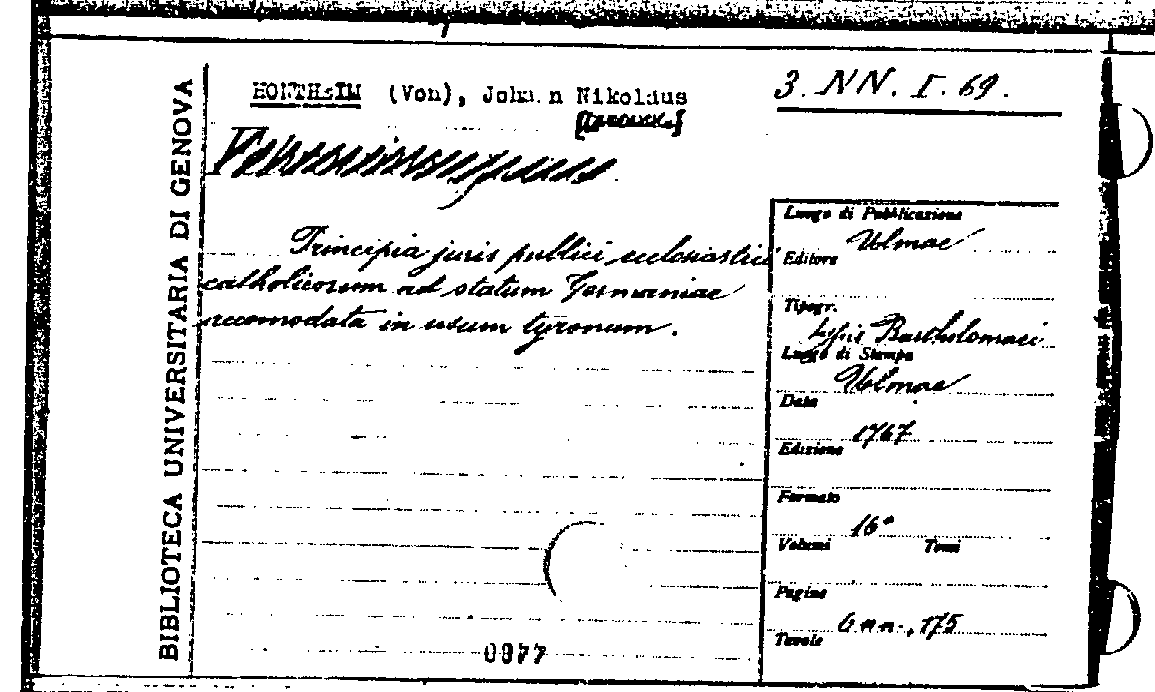 BIBLIOTECA UNIVERSITARIA DI GENOVA
HONTHEIM (Von), Johann Nikolaus
3. NN. I. 69.
Principia juris publici ecclesiastici
catholicorum ad statum Germaniae
accomodata in usum tyronum.
Luogo di Pubblicazione
Ulmae
Editore
Tipogr.
typis Bartholomaei
Luogo di Stampa
Ulmae
Data
1767
Edizione
Formato
16°
Volumi Tomi
Pagine
6 nn., 175
Tavole
0877